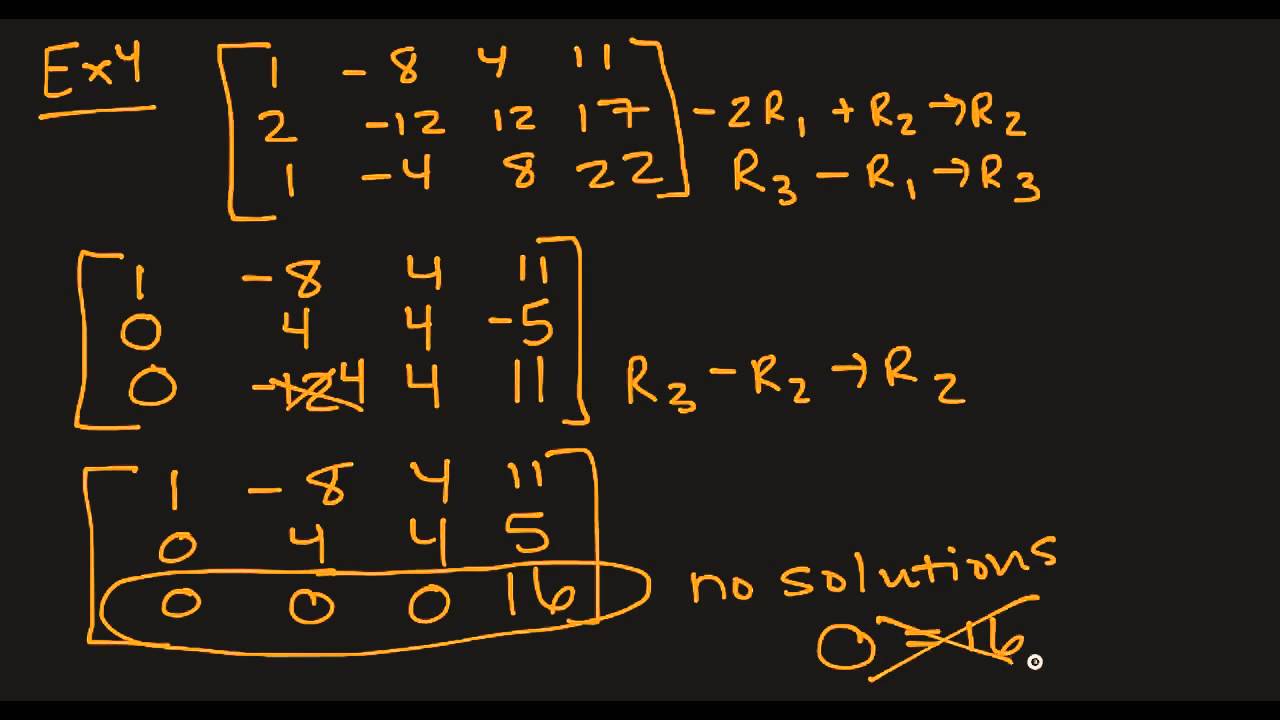 Ex 4
1 -8 4 11
2 -12 12 17 -2R₁ + R₂ → R₂
1 -4 8 22 R₃ - R₁ → R₃
1 -8 4 11
0 4 4 -5
0 -12 4 4 11 R₃ - R₂ → R₂
1 -8 4 11
0 4 4 5
0 0 0 16 no solutions
0 = 16